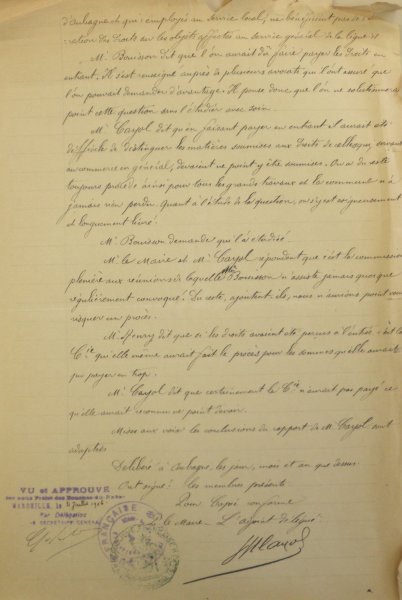 d'Aubagne et que employés au service local, ne bénéficient pas de
ration des Droits sur les objets affectés au service général de la ligne
Mr Bouisson dit que l'on aurait dû faire payer les Droits en
entrant. Il s'est renseigné auprès de plusieurs avocats qui l'ont assuré que
l'on pouvait demander d'avantage. Il pense donc que l'on ne solutionnera
point cette question sans l'étudier avec soin.
Mr Cayol dit qu'en faisant payer en entrant il aurait été
difficile de distinguer les matières soumises aux Droits de celles qui, servant
au commerce en général, devaient ne point y être soumises. On a du reste
toujours procédé ainsi pour tous les grands travaux et la commune n'a
jamais rien perdu. Quant à l'étude de la question, on s'y est soigneusement
et longuement livré.
Mr Bouisson demande qui l'a étudié
Mr le Maire et Mr Cayol répondent que c'est la commission
plénière aux réunions de laquelle Mr Bouisson n'assiste jamais quoique
régulièrement convoqué. Du reste, ajoutent-ils, nous n'aurions point voulu
risquer un procès.
Mr Henry dit que si les droits avaient été perçus à l'entrée c'est la
Cie qui elle même aurait fait le procès pour les sommes qu'elle aurait
pu payer en trop.
Mr Cayol dit que certainement la Cie n'aurait pas payé ce
qu'elle aurait reconnu ne point devoir.
Mises aux voix les conclusions du rapport de M. Cayol sont
adoptées
Délibéré à Aubagne les jour, mois et an que dessus.
Ont signé: les membres présents
Pour Copie conforme
le Maire - L'adjoint délégué
VU et APPROUVÉ
MARSEILLE, le
Par Délégation
LE SECRÉTAIRE GÉNÉRAL
FRANÇAISE